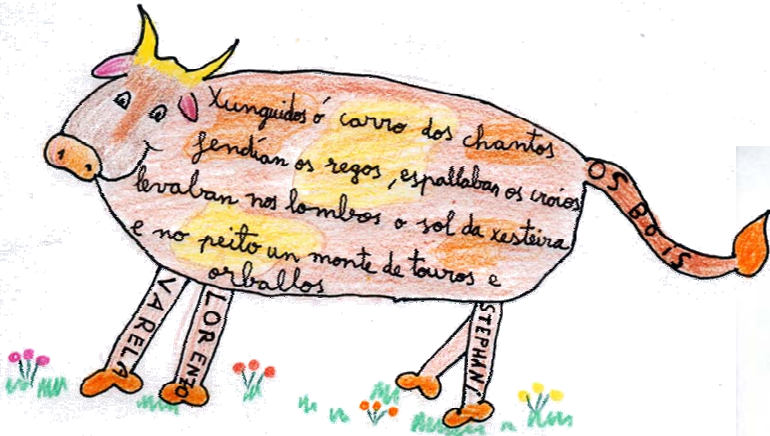 Xunguidos ó carro dos chantos
fendían os regos, espallaban os croios
levaban nos lombos o sol da xesteira
e no peito un monte de touros e
orballos
OS BOIS
VARELA
LORENZO
STEPHANI